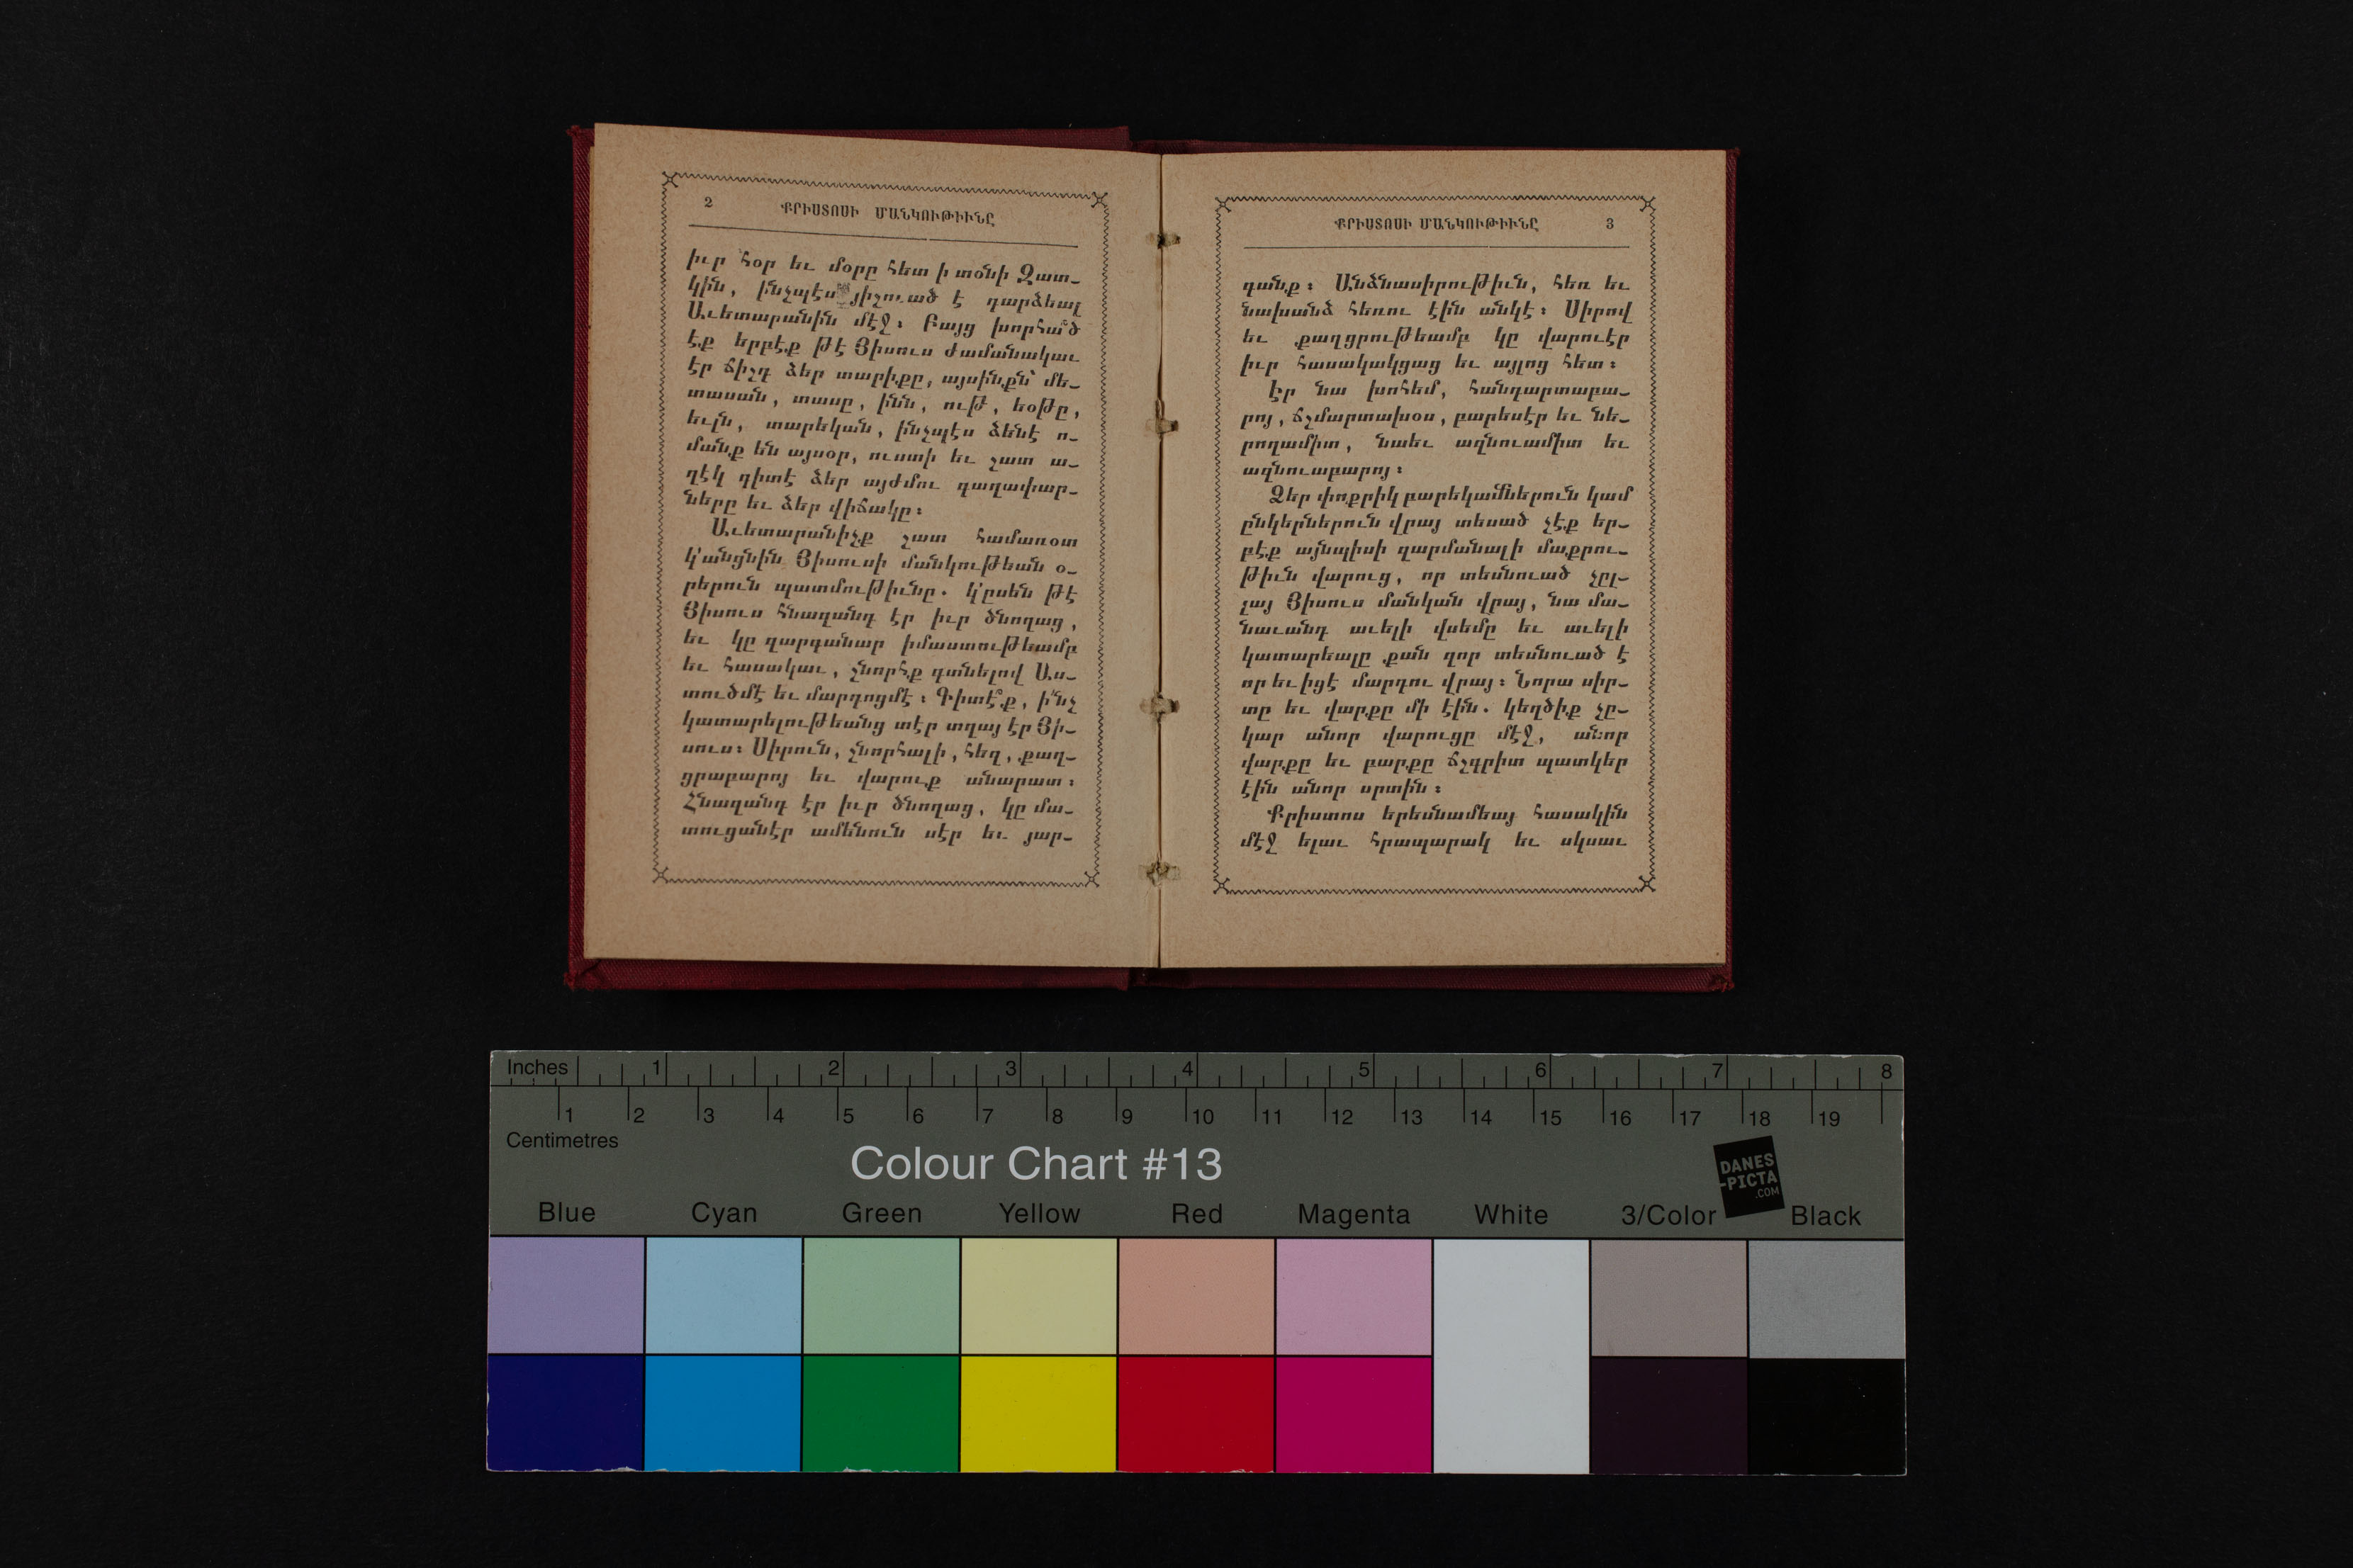 2 ՔՐԻՍՏՈՍԻ ՄԱՆԿՈՒԹԻՒՆԸ
իւր հօր եւ մօրը հետ ի տօնի Զատ-
կին, ինչպէս յիշուած է դարձեալ
Աւետարանին մէջ։ Բայց խորհա՞ծ
էք երբէք թէ Յիսուս ժամանակաւ
էր ճիշդ ձեր տարիքը, այսինքն՝ մե-
տասան, տասը, ինն, ութ, եօթը,
եւլն, տարեկան, ինչպէս ձենէ ո-
մանք են այսօր, ուստի եւ շատ ա-
ղէկ գիտէ ձեր այժմու գաղափար-
ները եւ ձեր վիճակը։
Աւետարանիչք շատ համառօտ
կ՚անցնին Յիսուսի մանկութեան օ-
րերուն պատմութիւնը. կ՚ըսեն թէ
Յիսուս հնազանդ էր իւր ծնողաց,
եւ կը զարգանար իմաստութեամբ
եւ հասակաւ, շնորհք գտնելով Աս-
տուծմէ եւ մարդոցմէ։ Գիտէ՞ք, ի՛նչ
կատարելութեանց տէր տղայ էր Յի-
սուս։ Սիրուն, շնորհալի, հեղ, քաղ-
ցրաբարոյ եւ վարուք անարատ։
Հնազանդ էր իւր ծնողաց, կը մա-
տուցանէր ամենուն սէր եւ յար-
ՔՐԻՍՏՈՍԻ ՄԱՆԿՈՒԹԻՒՆԸ 3
գանք։ Անձնասիրութիւն, հեռ եւ
նախանձ հեռու էին անկէ։ Սիրով
եւ քաղցրութեամբ կը վարուէր
իւր հասակակցաց եւ այլոց հետ։
Էր նա խոհեմ, հանդարտաբա-
րոյ, ճշմարտախօս, բարեսէր եւ նե-
րողամիտ, նաեւ ազնուամիտ եւ
ազնուաբարոյ։
Ձեր փոքրիկ բարեկամներուն կամ
ընկերներուն վրայ տեսած չէք եր-
բէք այնպիսի զարմանալի մաքրու-
թիւն վարուց, որ տեսնուած չըլ-
լայ Յիսուս մանկան վրայ, նա մա-
նաւանդ աւելի վսեմը եւ աւելի
կատարեալը քան զոր տեսնուած է
որ եւ իցէ մարդու վրայ։ Նորա սիր-
տը եւ վարքը մի էին. կեղծիք չը-
կար անոր վարուցը մէջ, անոր
վարքը եւ բարքը ճշգրիտ պատկեր
էին անոր սրտին։
Քրիստոս երեսնամեայ հասակին
մէջ ելաւ հրապարակ եւ սկսաւ
Inches 1 2 3 4 5 6 7 8
1 2 3 4 5 6 7 8 9 10 11 12 13 14 15 16 17 18 19
Centimetres
Colour Chart #13
DANES
-PICTA
.COM
Blue Cyan Green Yellow Red Magenta White 3/Color Black